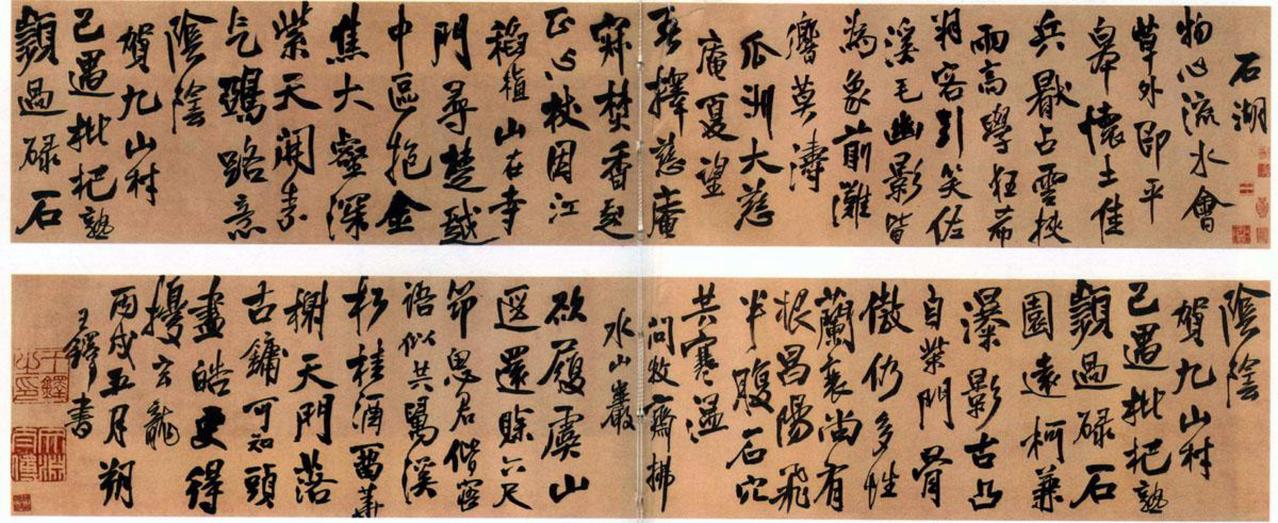 石湖
物心流水會
草外即平
皋懷土佳
兵厭占雲狹
雨高學狂
羽客引笑佐
溪毛幽影皆
為象前灘
響莫濤
瓜洲大慈
庵夏望
擇慈庵
寐焚香起
正心杖因江
稻植山在寺
門尋楚越
中區抱金
焦大壑深
紫天闊素
气路意
陰陰
賀九山村
已遇枇杷熟
顥過碌石
陰陰
賀九山村
已遇枇杷熟
顥過碌石
園遠柯兼
瀑影古凸
自柴門骨
傲仍多性
蘭衰尚有
根昌陽飛
半腹石穴
共寒溫
問牧齋拂
水山巖
欲履虞山
還賒六尺
節思君偕寤
語似共溪
松桂酒
榭天門落
古鏞可知頭
盡皓史得
擾玄龍
丙戌五月朔
王鐸書
王鐸之印